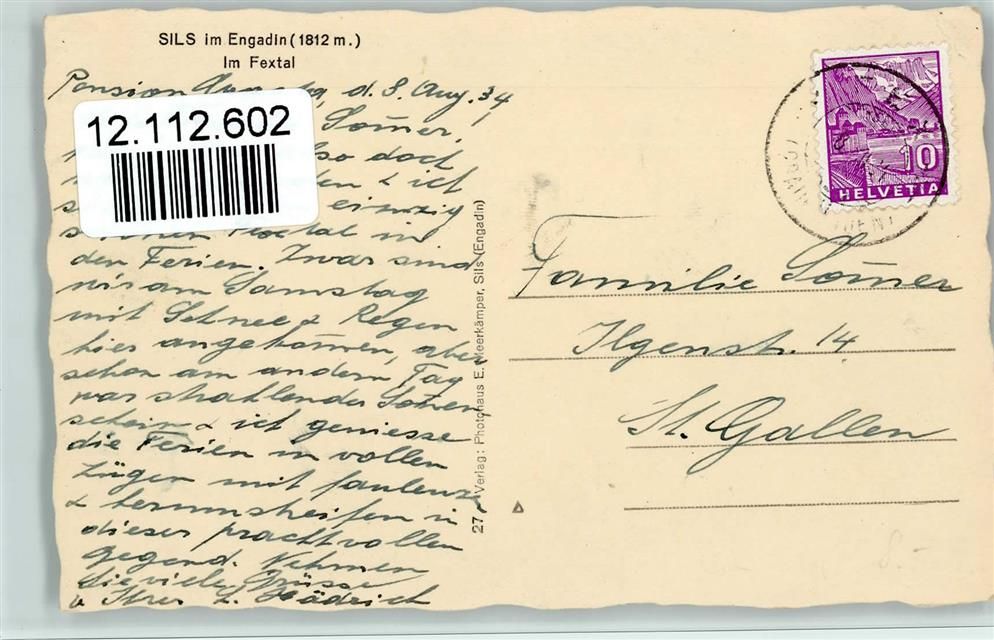 SILS im Engadin (1812 m.)
Im Fextal
Pension d. 8. Aug. 34
12.112.602
Som̅er,
so doch
& ich
einzig
Fextal in
den Ferien. Zwar sind
wir am Samstag
mit Schnee & Regen
hier angekom̅en, aber
schon am andern Tag
war strahlender Son̅en
schein & ich geniesse
die Ferien in vollen
Zügen mit faulenzen
& herumstreifen in
dieser prachtvollen
gegend. Nehmen
Sie viele Grüsse
v. Ihrer L. Hädrich
27 Verlag: Photohaus E. Meerkämper, Sils (Engadin)
10
HELVETIA
Familie Som̅er
Ilgenstr. 14
St. Gallen
8.-